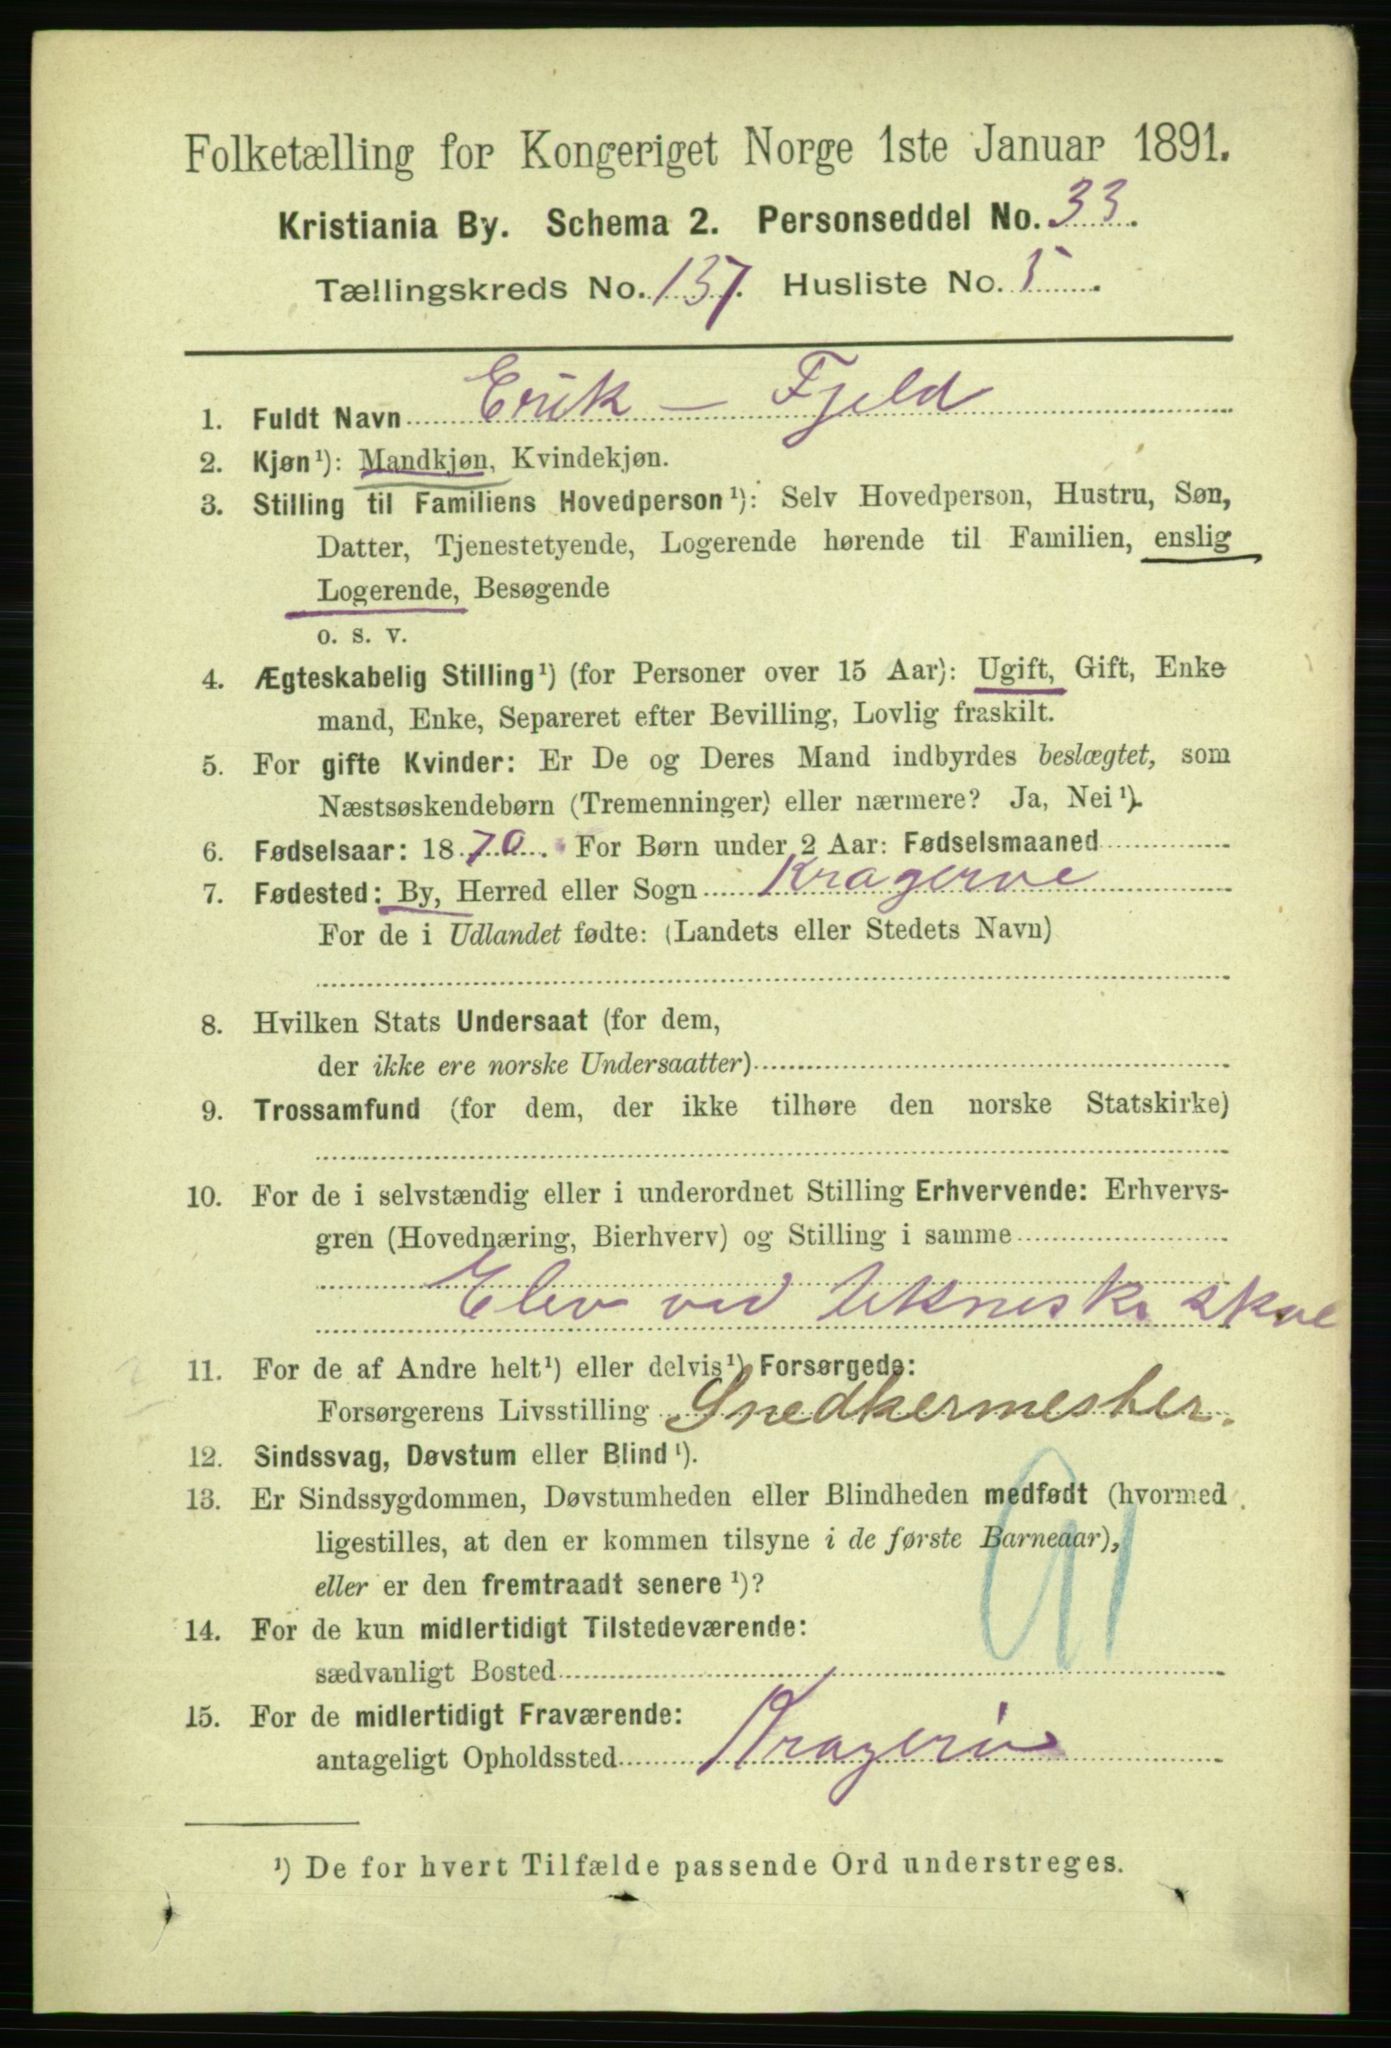 Folketælling for Kongeriget Norge 1ste Januar 1891.
Kristiania By. Schema 2. Personseddel No. 33.
Tællingskreds No. 137. Husliste No. 5.
1. Fuldt Navn Erik – Fjeld
2. Kjøn¹): Mandkjøn, Kvindekjøn.
3. Stilling til Familiens Hovedperson¹): Selv Hovedperson, Hustru, Søn,
Datter, Tjenestetyende, Logerende hørende til Familien, enslig
Logerende, Besøgende
o. s. v.
4. Ægteskabelig Stilling¹) (for Personer over 15 Aar): Ugift, Gift, Enke
mand, Enke, Separeret efter Bevilling, Lovlig fraskilt.
5. For gifte Kvinder: Er De og Deres Mand indbyrdes beslægtet, som
Næstsøskendebørn (Tremenninger) eller nærmere? Ja, Nei¹).
6. Fødselsaar: 1870. For Børn under 2 Aar: Fødselsmaaned
7. Fødested: By, Herred eller Sogn Kragerøe
For de i Udlandet fødte: (Landets eller Stedets Navn)
8. Hvilken Stats Undersaat (for dem,
der ikke ere norske Undersaatter)
9. Trossamfund (for dem, der ikke tilhøre den norske Statskirke)
10. For de i selvstændig eller i underordnet Stilling Erhvervende: Erhvervs-
gren (Hovednæring, Bierhverv) og Stilling i samme
Elev ved tekniske skole
11. For de af Andre helt¹) eller delvis¹) Forsørgede:
Forsørgerens Livsstilling Snedkermester.
12. Sindssvag, Døvstum eller Blind¹).
13. Er Sindssygdommen, Døvstumheden eller Blindheden medfødt (hvormed
ligestilles, at den er kommen tilsyne i de første Barneaar),
eller er den fremtraadt senere¹)?
91
14. For de kun midlertidigt Tilstedeværende:
sædvanligt Bosted
15. For de midlertidigt Fraværende:
antageligt Opholdssted Kragerø
¹) De for hvert Tilfælde passende Ord understreges.